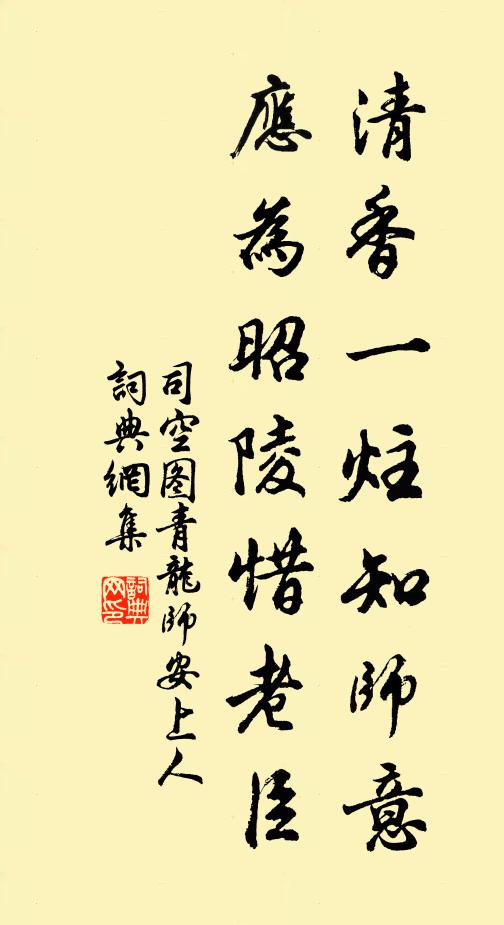 清香一炷知師意
應為昭陵惜老臣
司空图青龍師安上人
詞典網集